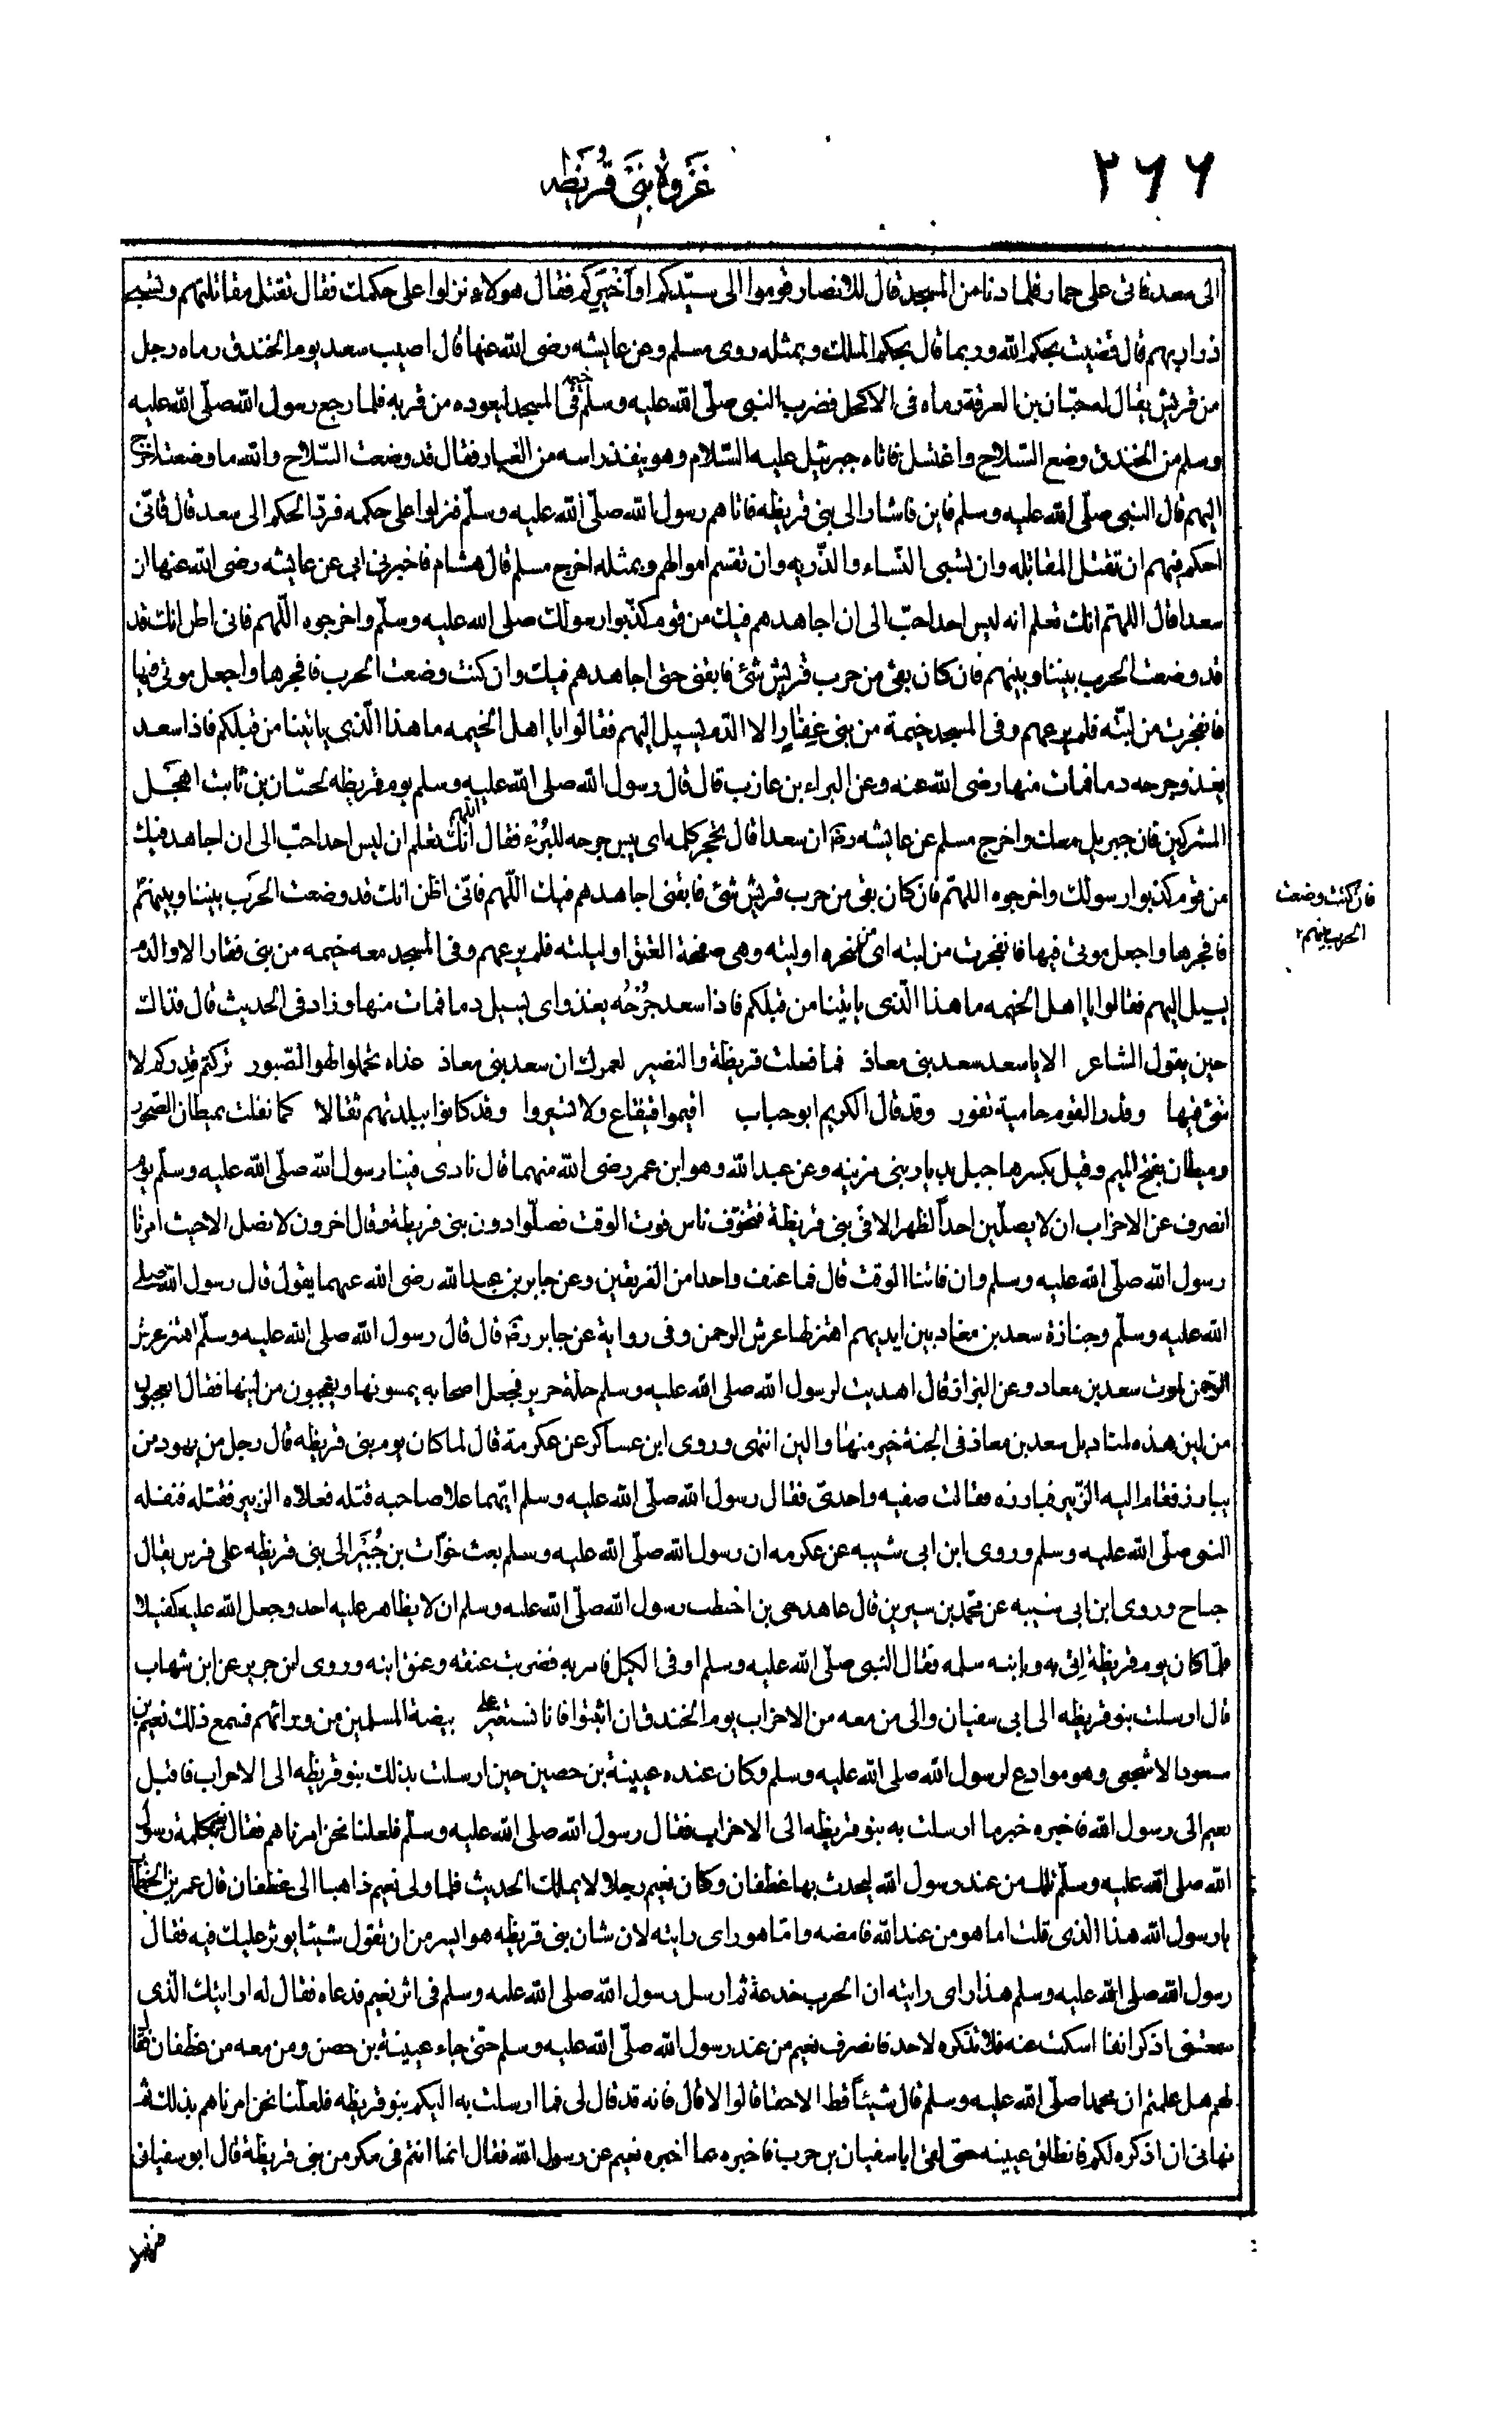 ٢٦٦
غزوة بنى قريظه
الى سعد فاتى على حمار فلما دنا من المسجد قال للانصار قوموا الى سيّدكم او اَخْيَركم فقال هولاء نزلوا على حكمك فقال تقتل مقاتلتهم وتسبى
ذراريهم قال قضيت بحكم الله وربما قال بحكم الملك وبمثله روى مسلم وعن عايشه رضى الله عنها قال اصيب سعد يوم الخندق رماه رجل
من قريش يقال له حبّان بن العرفة رماه فى الاكحل فضرب النبى صلّى الله عليه وسلم خيمه فى المسجد ليعوده من قريه فلما رجع رسول الله صلّى الله عليه
وسلم من الخندق وضع السّلاح واغتسل فاتاه جبرئيل عليه السّلام وهو ينفذ راسه من الغبار فقال قد وضعت السّلاح والله ما وضعته اخرج
اليهم قال النبى صلّى الله عليه وسلم فاين فاشار الى بنى قريظه فاتاهم رسول الله صلّى الله عليه وسلّم فنزلوا على حكمه فردّ الحكم الى سعد قال فانّى
احكم فيهم ان تقتل المقاتله وان تسبى النّساء والذّريه وان تقسم اموالهم وبمثله اخرج مسلم قال هشام فاخبرنى ابى عن عايشه رضى الله عنها ان
سعدا قال اللهمّ انك تعلم انه ليس احد احبّ الى ان اجاهدهم فيك من قوم كذّبوا رسولك صلى الله عليه وسلّم واخرجوه اللّهم فانى اظن انك قد
قد وضعت الحرب بيننا وبينهم فان كان بقى من حرب قريش شئ فابقنى حتى اجاهدهم فيك وان كنت وضعت الحرب فافجرها واجعل موتى فيها
فانفجرت من لبتّه فلم يرعهم وفى المسجد خيمة من بنى غِفارٍ الا الدّم يسيل اليهم فقالوا يا اهل الخيمه ما هذا الّذى ياتينا من قبلكم فاذا سعد
يغذو جرحه دما فمات منها رضى الله عنه وعن البراء بن عازب قال قال رسول الله صلى الله عليه وسلم يوم قريظه لحسّان بن ثابت اهجُل
المشركين فان جبريل معك واخرج مسلم عن عايشه رض ان سعدا قال تحجر كلمه اى يبس جرحه للبُرْء فقال اللهم انك تعلم ان ليس احد احبّ الى ان اجاهد فيك
من قوم كذبوا رسولك واخرجوه اللهمّ فان كان بقى من حرب قريش شئ فابقنى اجاهدهم فيك اللّهم فانّى اظن انك قد وضعت الحرَب بيننا وبينهم
فان كنت وضعت
الحرب بينهم
فافجرها واجعل موتى فيها فانفجرت من لبته اى من نحره اوليته وهى صفحة العنق او ليلته فلم يرعهم وفى المسجد معه خيمه من بنى غفار الا والدم
يسيل اليهم فقالوا يا اهل الخيمه ما هذا الّذى ياتينا من قبلكم فاذا سعد جُرْحُه يغذو اى يسيل دما فمات منها وزاد فى الحديث قال فذاك
حين يقول الشاعر الا يا سعد سعد بنى معاذ فما فعلت قريظة والنضير لعمرك ان سعد بنى معاذ غداه تحملوا لهو الصّبور تركتم قدركم لا
شئ فيها وقدر القوم حامية تفور وقد قال الكريم ابو حباب اقيموا قينقاع ولا تسيروا وقد كانوا ببلدتهم ثقالا كما ثقلت بميطان الصخور
وميطان بفتح الميم وقيل بكسرها جبل بديار بنى مزينه وعن عبد الله وهو ابن عمر رضى الله عنهما قال نادى فينا رسول الله صلّى الله عليه وسلّم يوم
انصرف عن الاحزاب ان لا يصلّين احداً لظهر الا فى بنى قريظة فتخوّف ناس فوت الوقت فصلّوا دون بنى قريظة وقال اخرون لا نصل الا حيث امرنا
رسول الله صلّى الله عليه وسلم وان فاتنا الوقت قال فما عنف واحدا من الفريقين وعن جابر بن عبد الله رضى الله عنهما يقول قال رسول الله صلى
الله عليه وسلّم وجنازة سعد بن معاذ بين ايديهم اهتز لها عرش الرحمن وفى رواية عن جابر رض قال قال رسول الله صلى الله عليه وسلّم اهتز عرش
الرّحمن لموت سعد بن معاد وعن البراء قال اهديت لرسول الله صلى الله عليه وسلم حلة حرير فجعل اصحابه يمسونها ويعجبون من لينها فقال اتعجبون
من لين هذه لمناديل سعد بن معاذ فى الجنة خير منها والين انتهى وروى ابن عساكر عن عكرمة قال لما كان يوم بنى قريظه قال رجل من يهود من
يبارز فقام اليه الزّبير فبارزه فقالت صفيه واحدىّ فقال رسول الله صلّى الله عليه وسلم ايّهما علا صاحبه قتله فعلاه الزبير فقتله فنفله
النبى صلّى الله عليه وسلم وروى ابن ابى شيبه عن عكرمه ان رسول الله صلّى الله عليه وسلم بعث خوّات بن جُبَيْر الى بنى قريظه على فرس يقال
جناح وروى ابن ابى شيبه عن محمد بن سيرين قال عاهد حيى بن اخطب رسول الله صلّى الله عليه وسلم ان لا يظاهر عليه احد وجعل الله عليه كفيلا
فلمّا كان يوم قريظة اتى به وبابنه سلمه فقال النبى صلّى الله عليه وسلم اوفى الكيل فامر به فضربت عنقه وعنق ابنه وروى ابن جرير عن ابن شهاب
قال ارسلت بنو قريظه الى ابى سفيان والى من معه من الاحزاب يوم الخندق ان اثبتوا فانا نستغير على بيضة المسلمين من ورائهم فسمع ذلك نعيم بن
مسعود الاشجعى وهو موادع لرسول الله صلى الله عليه وسلم وكان عنده عيينة بن حصين حين ارسلت بذلك بنو قريظه الى الاحزاب فاقبل
نعيم الى رسول الله فاخبره خبر ما ارسلت به بنو قريظه الى الاحزاب فقال رسول الله صلى الله عليه وسلّم فلعلنا نحن امرناهم فقال نعيم بكلمة رسول
الله صلى الله عليه وسلّم تلك من عند رسول الله ليحدث بها غطفان وكان نعيم رجلا لا يملك الحديث فلما ولى نعيم ذاهبا الى غطفان قال عمر بن الخطاب
يا رسول الله هذا الذى قلت اما هو من عند الله فامضه واما هو راى رايته لان شان بنى قريظه هو ايسر من ان تقول شيئا يوثر عليك فيه فقال
رسول الله صلى الله عليه وسلم هذا راى رايته ان الحرب خدعة ثم ارسل رسول الله صلى الله عليه وسلم فى اثر نعيم فدعاه فقال له ارايتك الذى
سمعتنى اذكر انفا اسكت عنه فلا تذكره لاحد فانصرف نعيم من عند رسول الله صلّى الله عليه وسلم حتى جاء عيينة بن حصن ومن معه من غطفان فقال
لهم هل علمتم ان محمدا صلّى الله عليه وسلم قال شيئاً قط الا حقا قالوا لا قال فانه قد قال لى فما ارسلت به اليكم بنو قريظه فلعلّنا نحن امرناهم بذلك ثم
نهانى ان اذكره لكم فانطلق عيينه حتى لقى ابا سفيان بن حرب فاخبره بما اخبره نعيم عن رسول الله فقال انما انتم فى مكر من بنى قريظة قال ابو سفيان